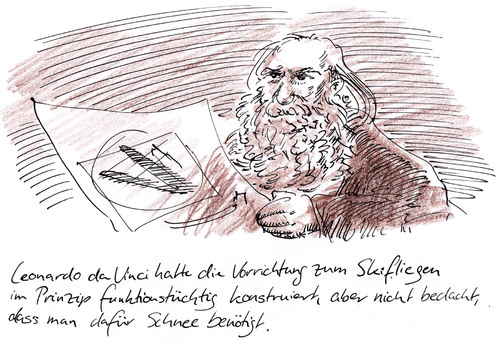 Leonardo da Vinci hatte die Vorrichtung zum Skifliegen
im Prinzip funktionstüchtig konstruiert, aber nicht bedacht,
dass man dafür Schnee benötigt.